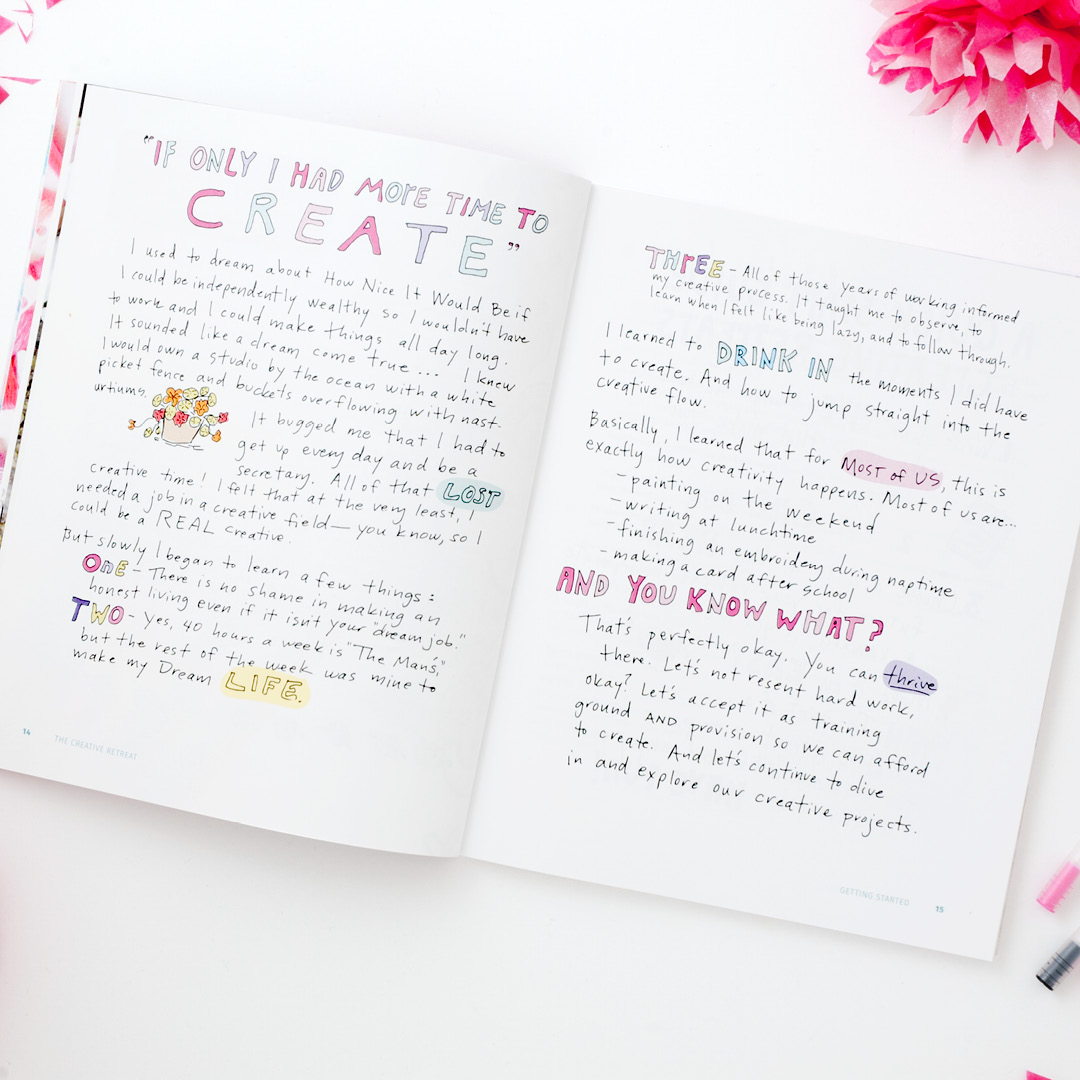 "IF ONLY I HAD MORE TIME TO
CREATE"
I used to dream about How Nice It Would Be if
I could be independently wealthy so I wouldn't have
to work and I could make things all day long.
It sounded like a dream come true... I knew
I would own a studio by the ocean with a white
picket fence and buckets overflowing with nast-
urtiums.
It bugged me that I had to
get up every day and be a
secretary. All of that LOST
creative time! I felt that at the very least, I
needed a job in a creative field—you know, so I
could be a REAL creative.
But slowly I began to learn a few things:
ONE - There is no shame in making an
honest living even if it isn't your "dream job."
TWO - Yes, 40 hours a week is "The Man's,"
but the rest of the week was mine to
make my Dream LIFE.
14 THE CREATIVE RETREAT
THREE - All of those years of working informed
my creative process. It taught me to observe, to
learn when I felt like being lazy, and to follow through.
I learned to DRINK IN the moments I did have
to create. And how to jump straight into the
creative flow.
Basically, I learned that for MOST of US, this is
exactly how creativity happens. Most of us are...
- painting on the weekend
- writing at lunchtime
- finishing an embroidery during naptime
- making a card after school
AND YOU KNOW WHAT?
That's perfectly okay. You can thrive
there. Let's not resent hard work,
okay? Let's accept it as training
ground AND provision so we can afford
to create. And let's continue to dive
in and explore our creative projects.
GETTING STARTED 15